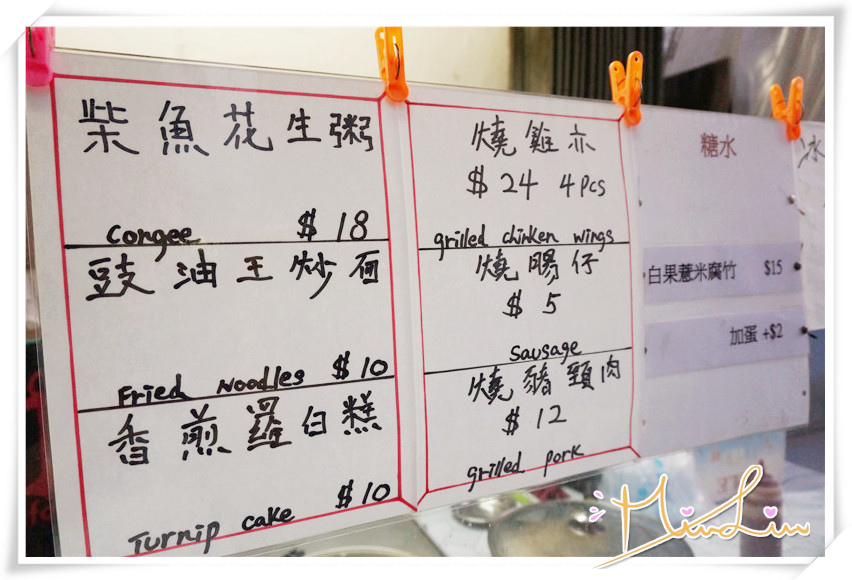 柴魚花生粥
Congee $18
豉油王炒面
Fried Noodles $10
香煎蘿白糕
Turnip cake $10
燒雞亦
$24 4pcs
grilled chinken wings
燒腸仔
$5
Sausage
燒豬頸肉
$12
grilled pork
糖水
白果薏米腐竹 $15
加蛋 +$2
水
MinLin